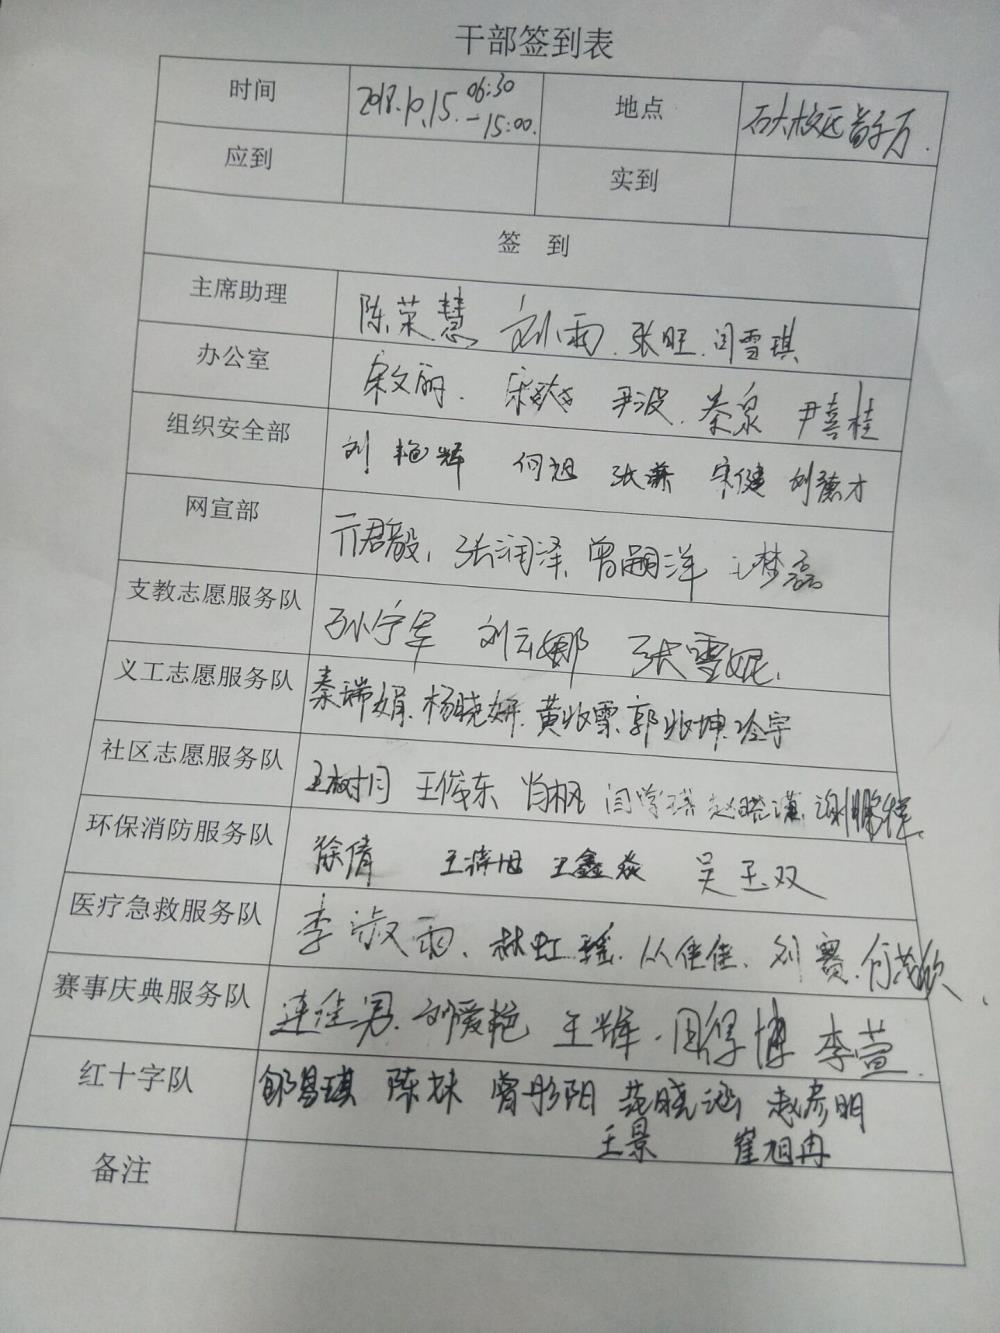 干部签到表
时间 2018.10.15. 06:30 地点
-15:00.
应到 实到
签 到
主席助理 陈荣慧 刘雨. 张旺. 闫雪琪
办公室 宋文丽. 尹波. 秦泉 尹喜桂
组织安全部 刘艳辉 何旭 张谦 宋健 刘德才
网宣部 亓君毅, 张润泽, 曾嗣洋 王梦磊
支教志愿服务队 孙宁军 刘云娜 张雪妮.
义工志愿服务队 秦瑞娟. 杨晓妍. 黄兆霖. 郭兆坤. 冷宇
社区志愿服务队 王树月 王俊东 肖枫 闫学琪
环保消防服务队 徐倩 王鑫焱 吴玉双
医疗急救服务队 李淑雨. 林虹瑶. 从佳佳. 刘赛.
赛事庆典服务队 连佳男. 刘爱艳 王辉. 李萱.
红十字队 邹易琪 陈林 曾彤阳 范晓涵 赵彦明
王景 崔旭冉
备注